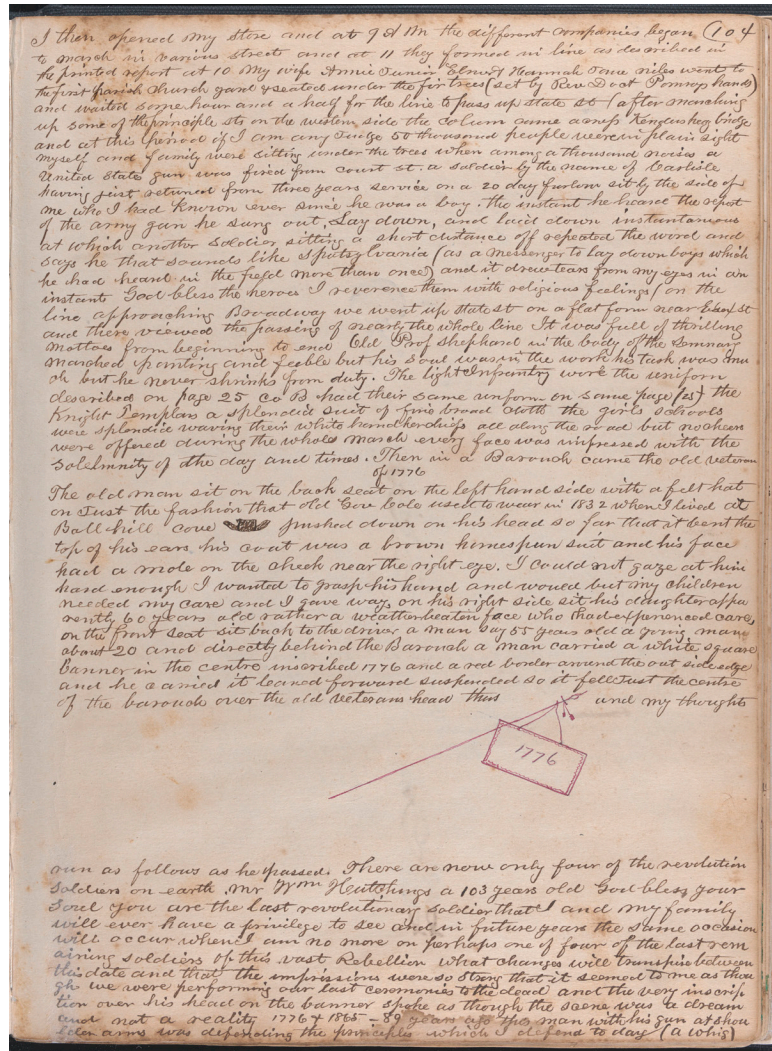 I then opened My Store and at 9 A M the different companies began (104
to march in various streets and at 11 they formed in line as described in
the printed report at 10 My wife Annie Junior Elmer & Hannah Jane Niles went to
the first Parish Church yard & seated under the fir trees (set by Rev Doct Pomroys hands)
and waited some hour and a half for the line to pass up state st (after marching
up some of the principle sts on the western side the column came across Kenduskeag bridge
and at this period if I am any Judge 50 thousand people were in plain sight
myself and family were sitting under the trees when among a thousand noises a
United States gun was fired from Court st. a soldier by the name of Carlisle
having just returned from three years service on a 20 day furlow sit by the side of
me who I had known ever since he was a boy. the instant he heard the report
of the army gun he sung out, Lay down, and laid down instantaneous
at which another soldier sitting a short distance off repeated the word and
says he that sounds like Spotsylvania (as a messenger to lay down boys which
he had heard in the field more than once) and it drew tears from my eyes in an
instant God bless the heroes I reverence them with religious feelings (on the
line approaching Broadway we went up state st on a flat form near Essex st
and there viewed the passing of nearly the whole line It was full of thrilling
mottoes from beginning to end Old Prof Shephard in the body of the Seminary
marched panting and feeble but his soul was in the work his task was mu
ch but he never shrinks from duty. The light Infantry wore the uniform
described on page 25 Co B had their same uniform on same page (25) the
Knight Templars a splendid suit of fine broad cloth the girls schools
were splendid waving their white handkerchiefs all along the road but no cheers
were offered during the whole march every face was impressed with the
Solelmnity of the day and times. Then in a Barouch came the old veteran
of 1776
The old man sit on the back seat on the left hand side with a felt hat
on Just the fashion that old Gov Cole used to wear in 1832 when I lived at
Ball hill cove pushed down on his head so far that it bent the
top of his ears his coat was a brown homespun suit and his face
had a mole on the cheek near the right eye. I could not gaze at him
hard enough I wanted to grasp his hand and woued but my children
needed my care and I gave way, on his right side sit his daughter appa
rently 60 years old rather a weatherbeaten face who had experienced care,
on the front seat sit back to the driver a man say 55 years old a young man
about 20 and directly behind the Barouch a man carried a white square
Banner in the centre inscribed 1776 and a red border around the out side edge
and he carried it leaned forward suspended so it fell Just the centre
of the barouch over the old veterans head thus and my thoughts
1776
run as follows as he passed. There are now only four of the revolution
Soldiers on earth. Mr Wm Hutchings a 103 years old God bless your
Soul you are the last revolutionary soldier that I and my family
will ever have a privilege to see and in future years the same occasion
will occur when I am no more on perhaps one of four of the last rem
aining soldiers of this vast Rebellion what changes will transpire between
this date and that the impressions were so strong that it seemed to me as thou
gh we were performing our last ceremonies to the dead and the very inscrip
tion over his head on the banner spoke as though the scene was a dream
and not a reality 1776 & 1865 - 89 years ago this man with his gun at shou
lder arms was defending the principles which I defend to day (a whig)